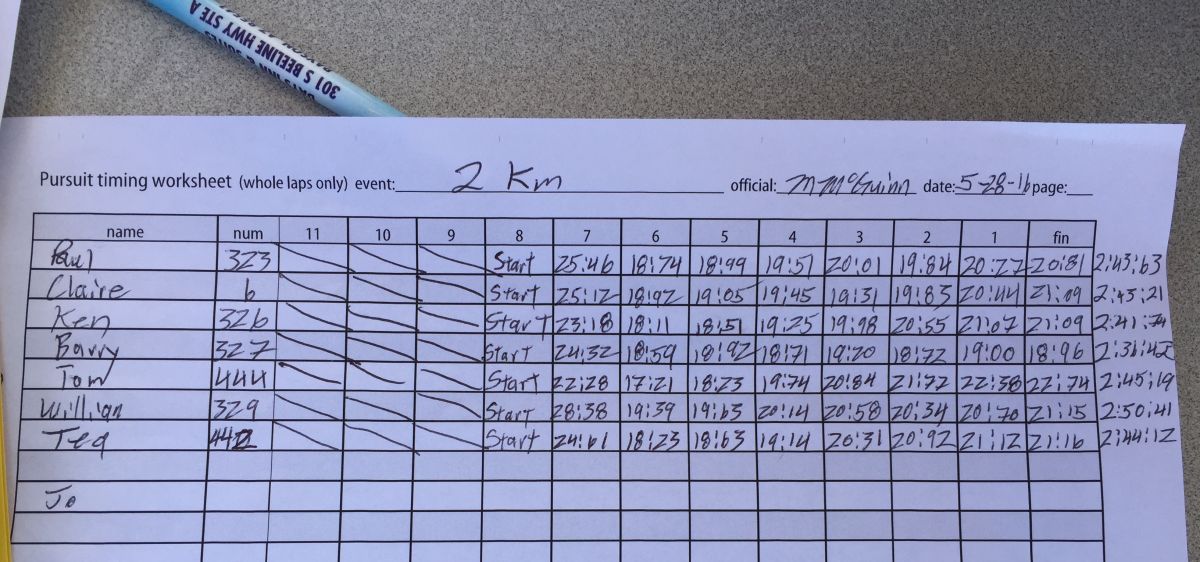 301 S BEELINE HWY STE A
Pursuit timing worksheet (whole laps only) event: 2 Km official: M McGuinn date: 5-28-16 page:
name num 11 10 9 8 7 6 5 4 3 2 1 fin
Paul 323 Start 25:46 18:74 18:99 19:51 20:01 19:84 20:27 20:81 2:43:63
Claire 6 Start 25:12 18:92 19:05 19:45 19:31 19:83 20:44 21:09 2:43:21
Ken 326 Start 23:18 18:11 18:51 19:25 19:98 20:55 21:07 21:09 2:41:74
Barry 327 Start 24:32 18:59 18:92 18:71 19:20 18:72 19:00 18:96 2:36:42
Tom 444 Start 22:28 17:21 18:23 19:74 20:84 21:77 22:38 22:74 2:45:19
William 329 Start 28:38 19:39 19:63 20:14 20:58 20:34 20:70 21:15 2:50:41
Teq Start 24:61 18:23 18:63 19:14 20:31 20:92 21:12 21:16 2:44:12
Jo